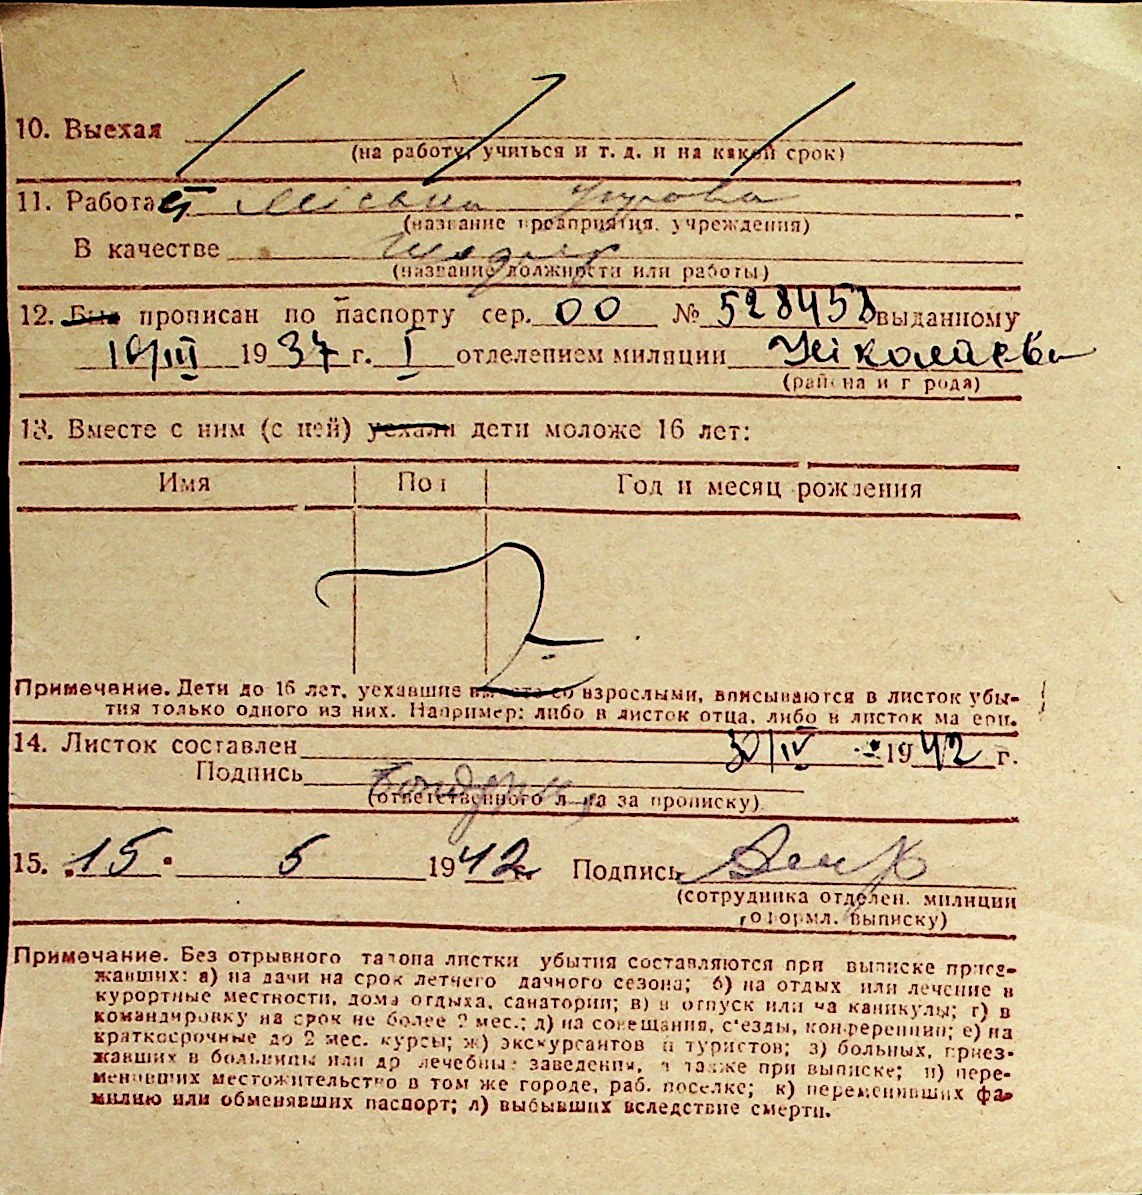 10. Выехал
(на работу, учиться и т. д. и на какой срок)
11. Работает
(название предприятия, учреждения)
В качестве
(название должности или работы)
12. Был прописан по паспорту сер. 00 № 528458 выданному
III 1937 г. I отделением милиции Ніколаєва
(района и города)
13. Вместе с ним (с ней) уехали дети моложе 16 лет:
Имя Пол Год и месяц рождения
Примечание. Дети до 16 лет, уехавшие вместе со взрослыми, вписываются в листок убы-
тия только одного из них. Например: либо в листок отца, либо в листок матери.
14. Листок составлен 30/IV 1942 г.
Подпись
(ответственного лица за прописку)
15. 15. 5 1942 г. Подпись
(сотрудника отделен. милиции
оформл. выписку)
Примечание. Без отрывного талона листки убытия составляются при выписке приез-
жавших: а) на дачи на срок летнего дачного сезона; б) на отдых или лечение в
курортные местности, дома отдыха, санатории; в) в отпуск или на каникулы; г) в
командировку на срок не более 2 мес.; д) на совещания, с'езды, конференции; е) на
краткосрочные до 2 мес. курсы; ж) экскурсантов и туристов; з) больных, приез-
жавших в больницы или др лечебные заведения, а также при выписке; и) пере-
менивших местожительство в том же городе, раб. поселке; к) переменивших фа-
милию или обменявших паспорт; л) выбывших вследствие смерти.